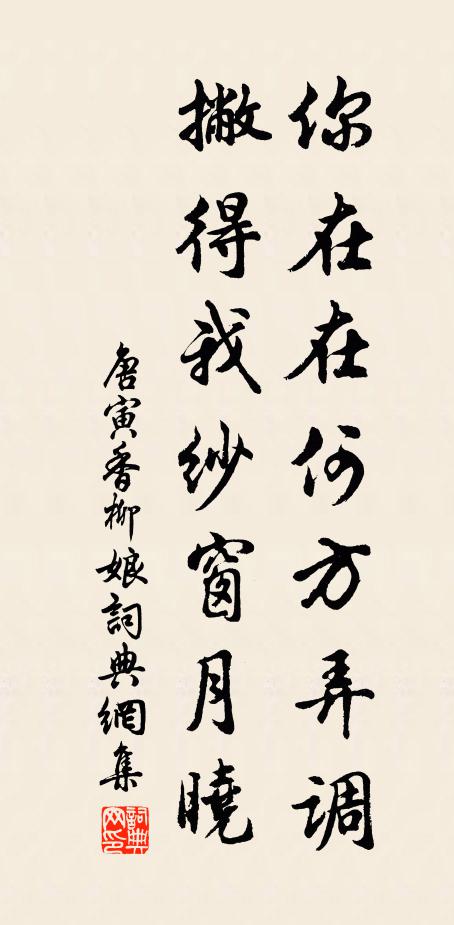 你在在何方弄調
撇得我紗窗月曉
唐寅香柳娘詞典網集
詞典網印